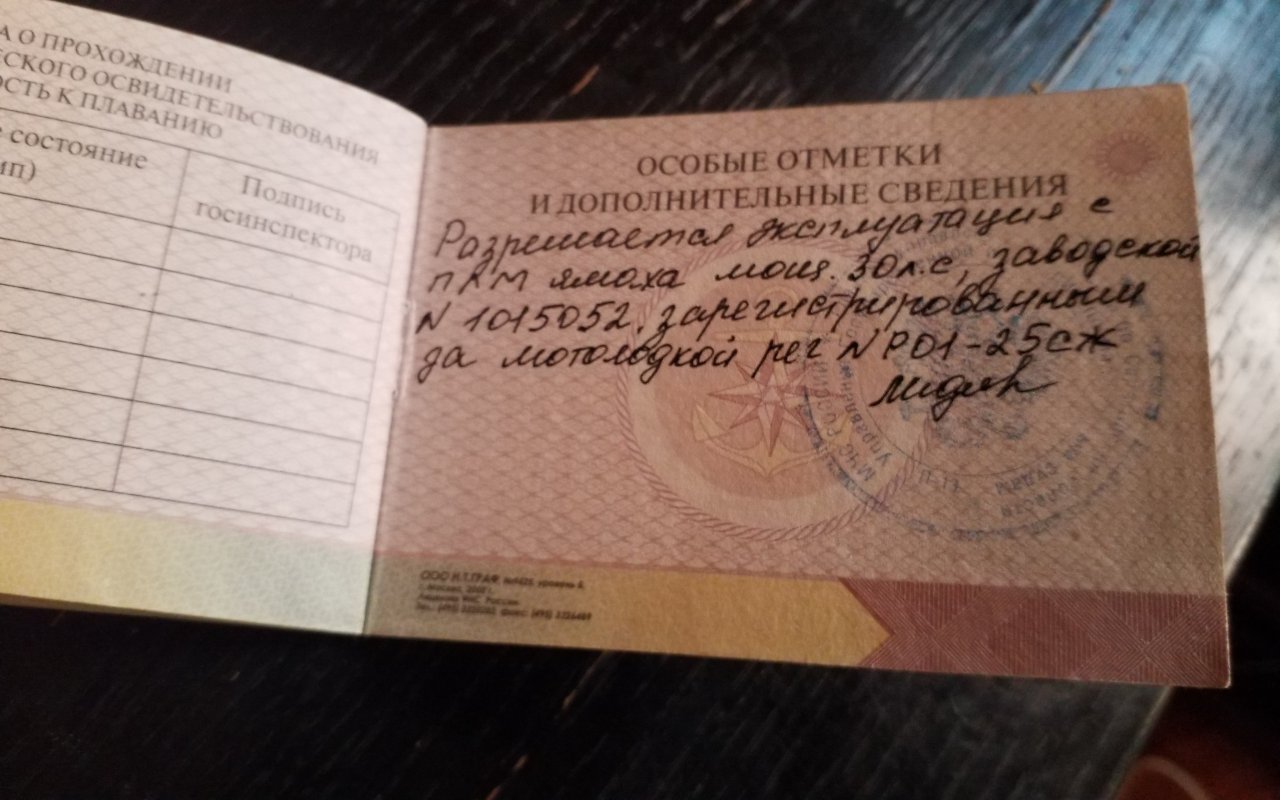 А О ПРОХОЖДЕНИИ
ЕСКОГО ОСВИДЕТЕЛЬСТВОВАНИЯ
ОСТЬ К ПЛАВАНИЮ
е состояние
ип)
Подпись
госинспектора
ОСОБЫЕ ОТМЕТКИ
И ДОПОЛНИТЕЛЬНЫЕ СВЕДЕНИЯ
Разрешается эксплуатация с
ПЛМ ямаха мощ. 30л.с, заводской
N 1015052, зарегистрированным
за мотолодкой рег N РО1-25СЖ
МЧС России
Управление
ООО Н.Т.ГРАФ,
г.Москва,